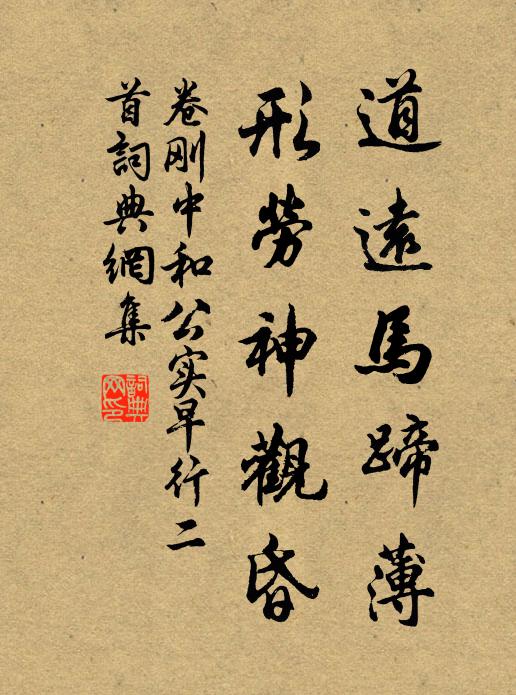 道遠馬蹄薄
形勞神觀昏
卷刚中和公实早行二
首詞典網集
詞典網印